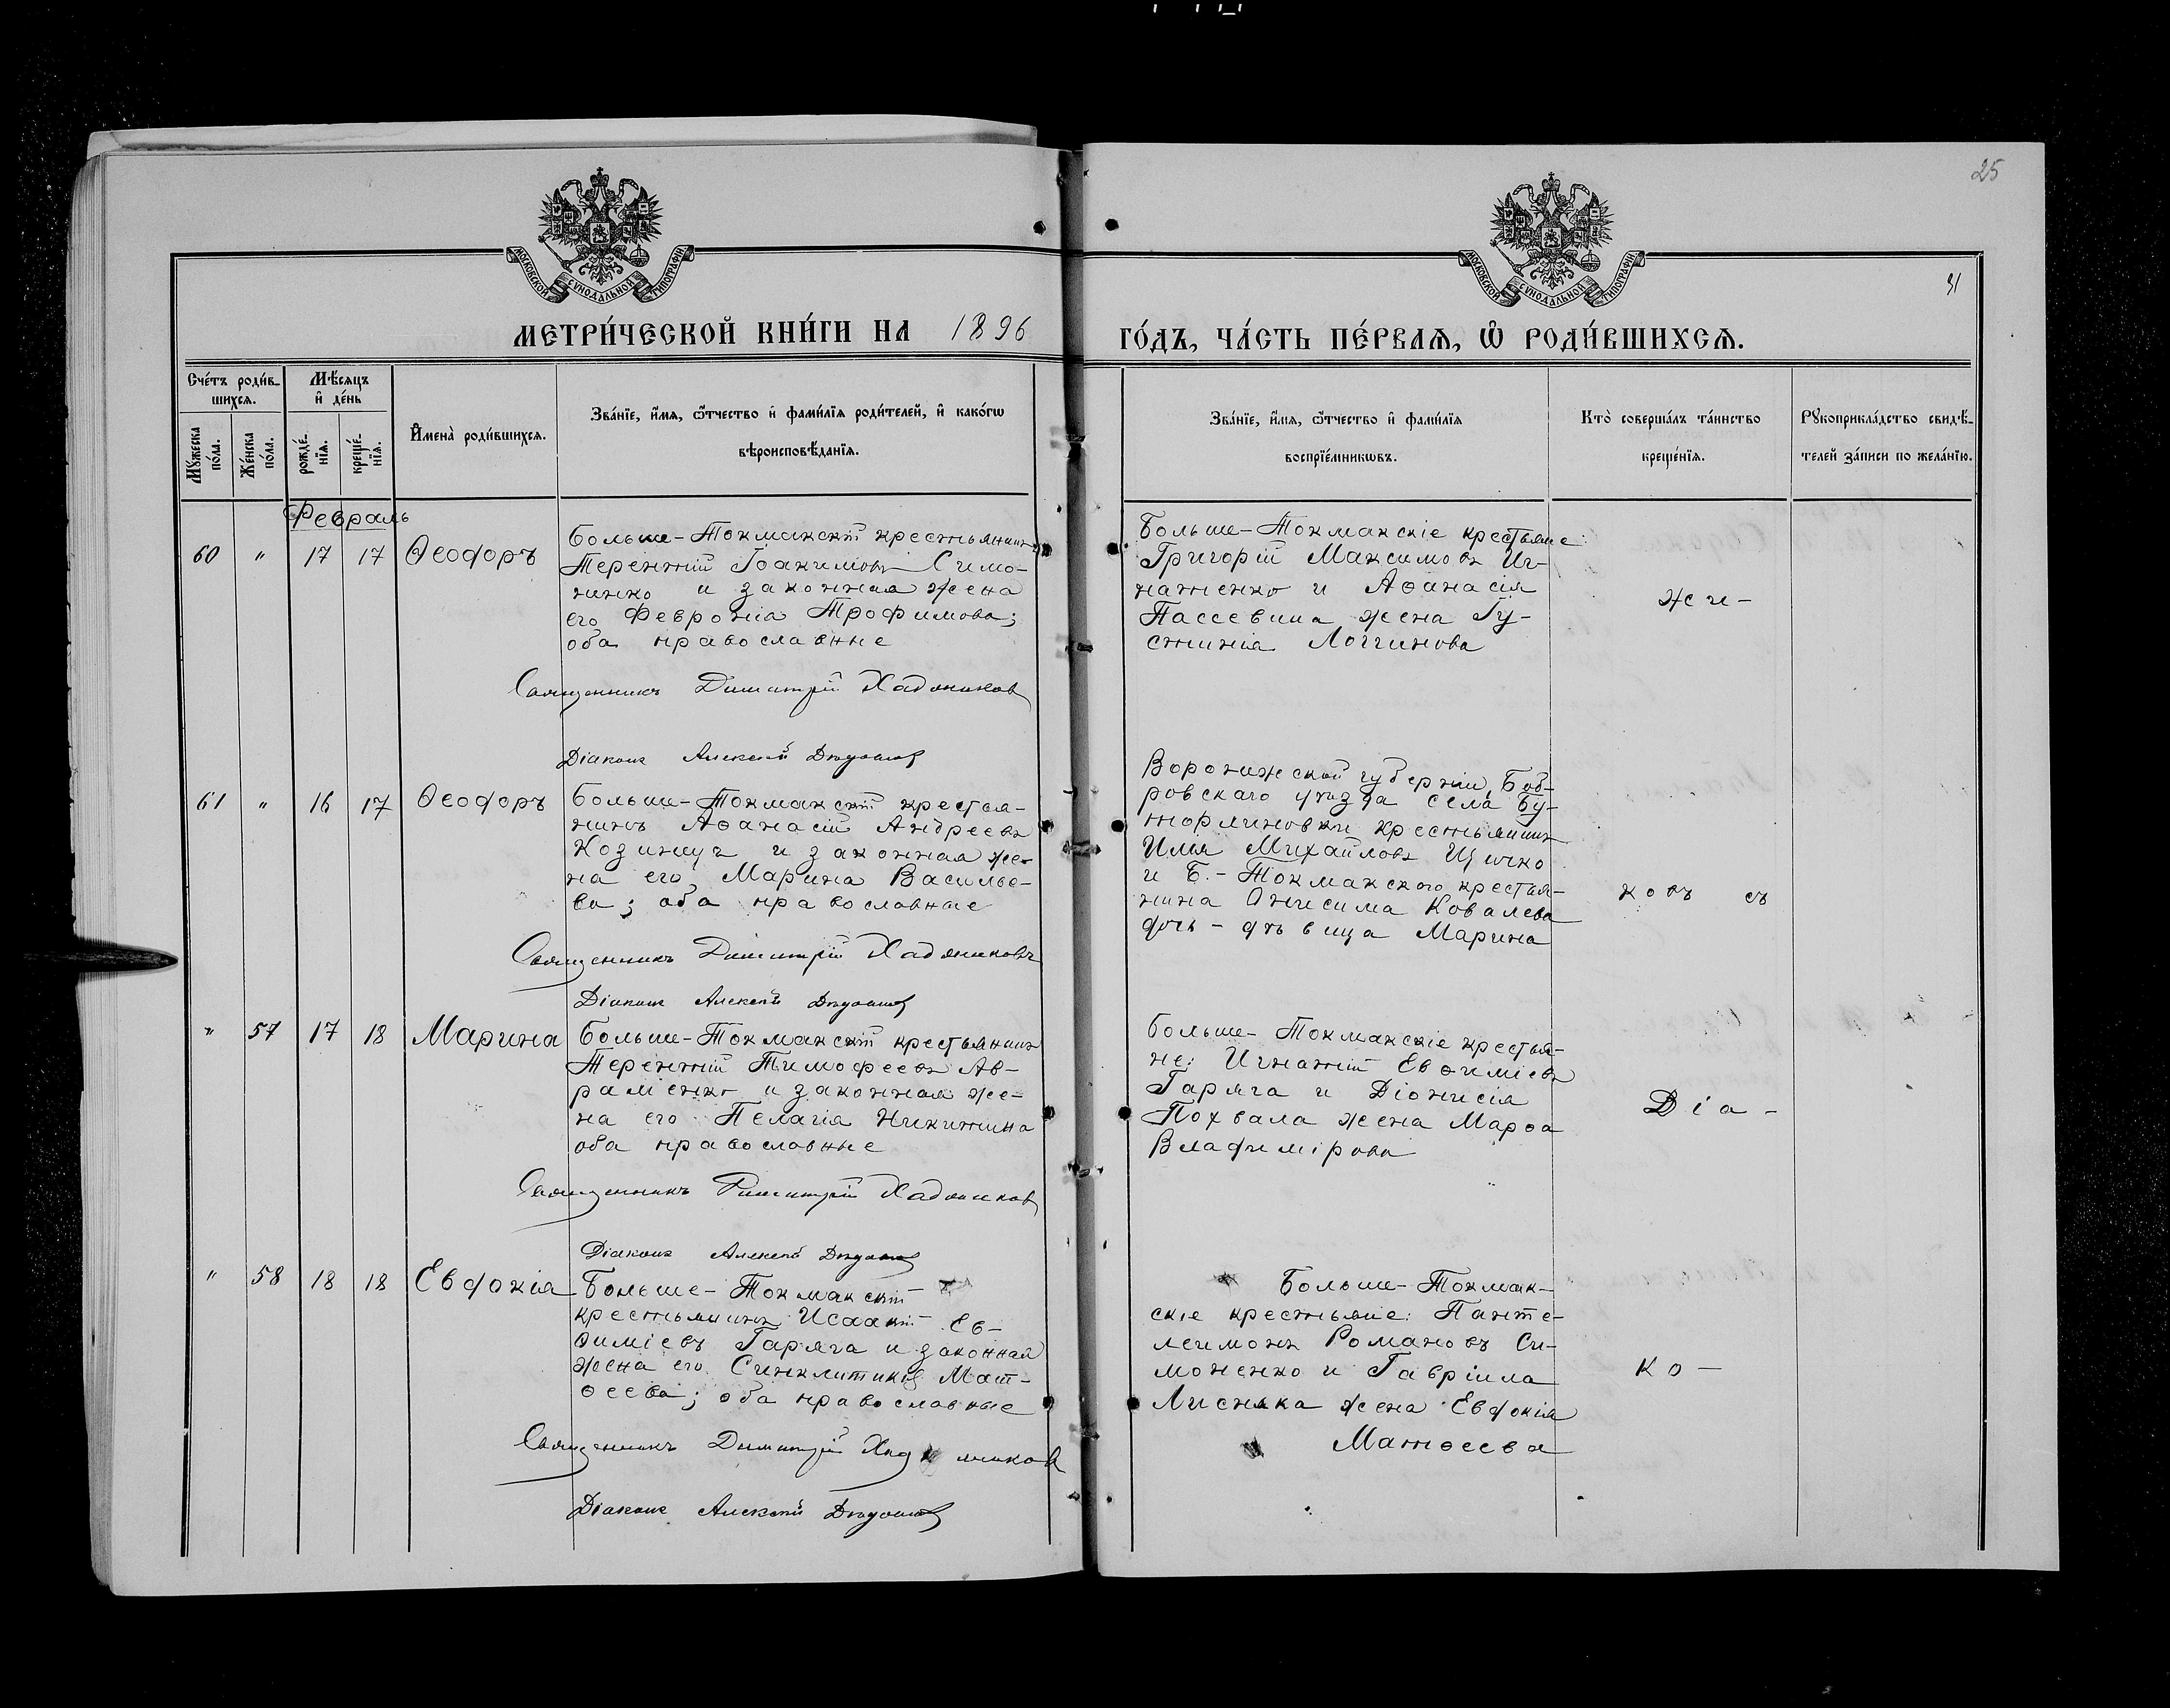 25
31
МОСКОВСКОЙ СѴНОДАЛЬНОЙ ТИПОГРАФІИ
МОСКОВСКОЙ СѴНОДАЛЬНОЙ ТИПОГРАФІИ
МЕТРИ́ЧЕСКОЙ КНИ́ГИ НА 1896
ГО́ДЪ, ЧА́СТЬ ПЕ́РВАѦ, Ѽ РОДИ́ВШИХСѦ.
Сче́тъ роди́в-
шихсѧ.
Мѣ́сѧцъ
и҆ де́нь
Мꙋ́жеска по́ла.
Же́нска по́ла.
рожде́-
нїѧ.
креще́-
нїѧ.
И҆мена̀ роди́вшихсѧ.
Зва́нїе, и҆́мѧ, ѻ҆́тчество и҆ фами́лїѧ роди́телей, и҆ како́гѡ
вѣроисповѣ́данїѧ.
Зва́нїе, и҆́мѧ, ѻ҆́тчество и҆ фами́лїѧ
воспрїе́мникѡвъ.
Кто̀ соверша́лъ та́инство
креще́нїѧ.
Рꙋкоприкла́дство свидѣ́-
телей за́писи по жела́нїю.
Февраль
60 " 17 17 Ѳеодоръ
Больше-Токмакскій крестьянинъ
Терентій Іоакимовъ Симо-
ненко и законная жена
его Февронія Трофимова;
оба православные
Священникъ Димитрій
Діаконъ Алексѣй
Больше-Токмакскіе крестьяне:
Григорій Максимовъ Иг-
натенко и Аѳанасія
жена Іу-
стинія Логгинова
жен-
61 " 16 17 Ѳеодоръ
Больше-Токмакскій крестья-
нинъ Аѳанасій Андреевъ
и законная же-
на его Марина Василье-
ва; оба православные
Священникъ Димитрій
Діаконъ Алексѣй
Воронежской губерніи, Боб-
ровскаго уѣзда села Бу-
турлиновки крестьянинъ
Илія Михайловъ
и Б.-Токмакского крестья-
нина Онисима Ковалева
дочь-дѣвица Марина
ковъ съ
" 57 17 18 Марина
Больше-Токмакскій крестьянинъ
Терентій Тимофеевъ Ав-
раменко и законная же-
на его Пелагія Никитина
оба православные
Священникъ Димитрій
Діаконъ Алексѣй
Больше-Токмакскіе крестья-
не: Игнатій Евѳиміевъ
Гаряга и Діонисія
Похвала жена Марѳа
Владимірова
Діа-
" 58 18 18 Евдокія
Больше-Токмакскій
крестьянинъ Исаакій Ев-
ѳиміевъ Гаряга и законная
жена его Синклитикія Мат-
ѳеева; оба православные
Священникъ Димитрій
Діаконъ Алексѣй
Больше-Токмак-
скіе крестьяне: Панте-
леимонъ Романовъ Си-
моненко и Гавріила
Лисняка жена Евдокія
Матѳеева
ко-